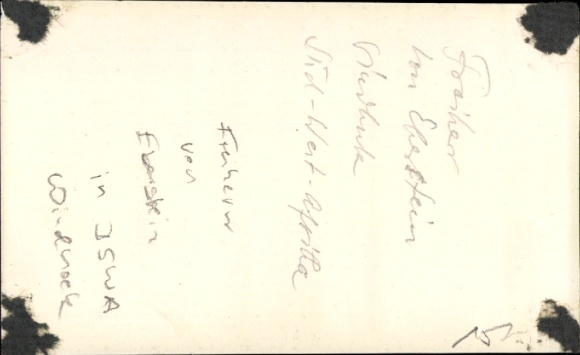 Freiherr
von Eberstein
Windhuk
Süd-West-Afrika
Freiherr
von
in JSWA
Windhoek